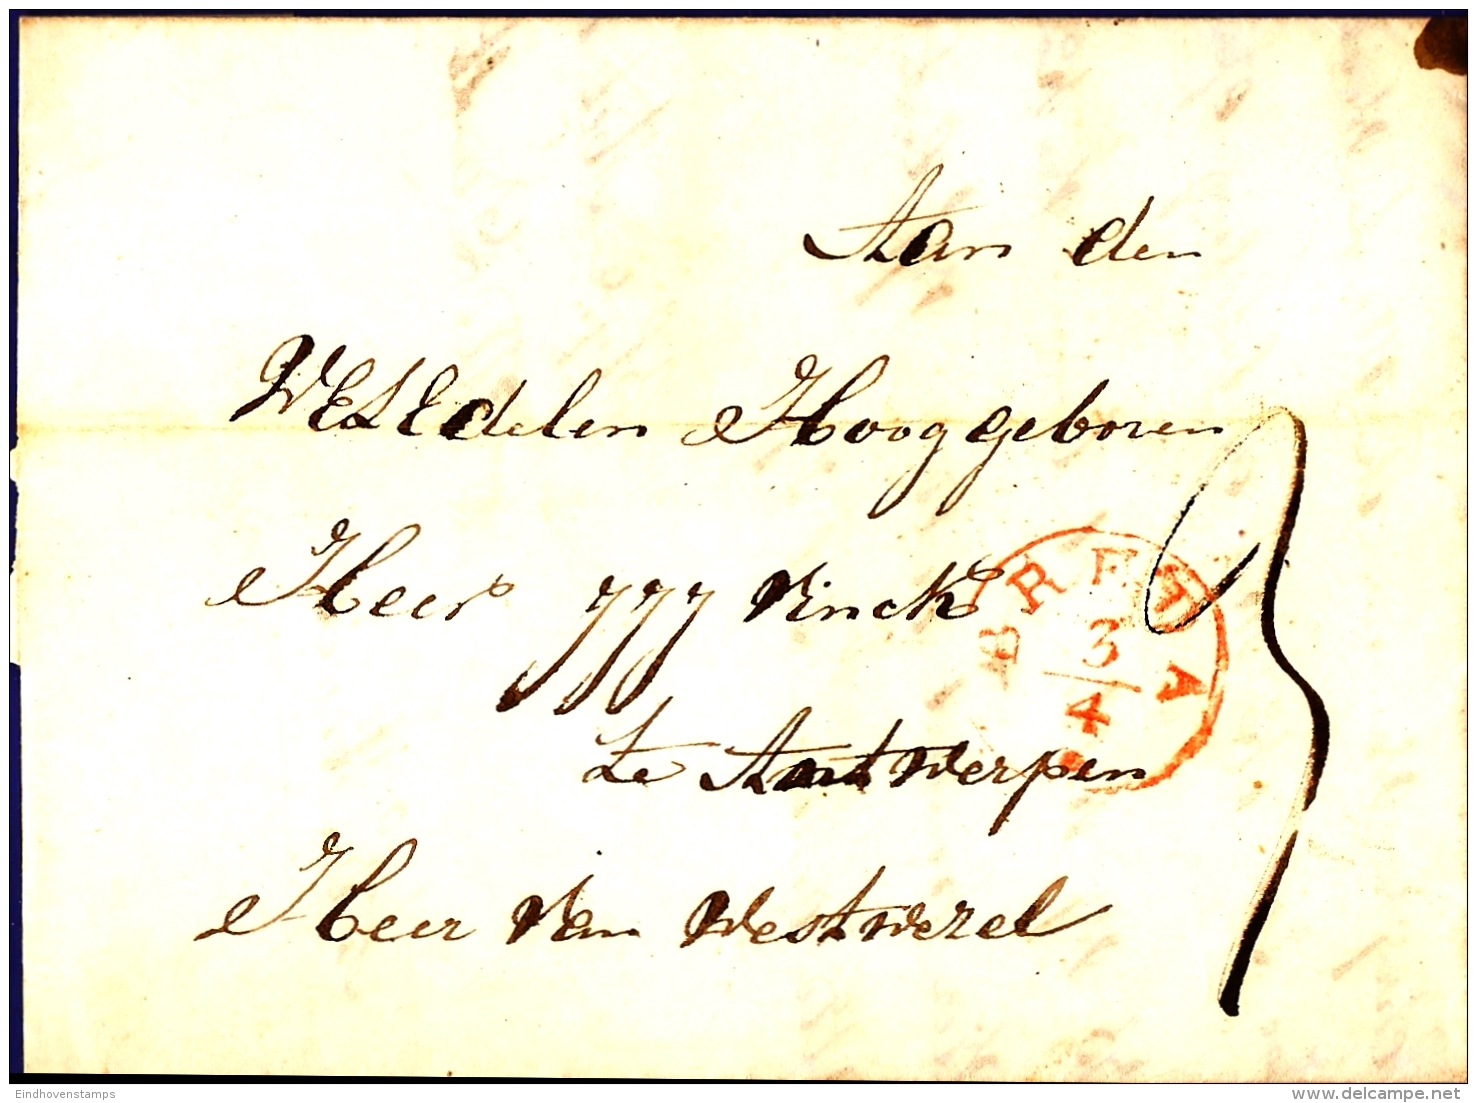 Aan den
WELEdelen Hooggeboren
Heer JJJ Vinck
te Antwerpen
Heer van Westwezel
BREDA
3
4
3
Eindhovenstamps
www.delcampe.net